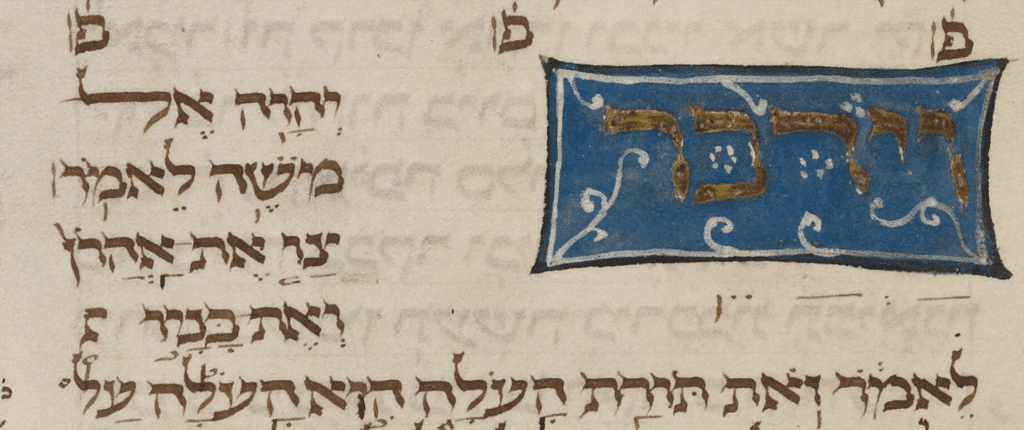 פ פ פ
וידבר
יְהוָה אֶל
מֹשֶׁה לֵאמֹר
צַו אֶת אַהֲרֹן
וְאֶת בָּנָיו
לֵאמֹר זֹאת תּוֹרַת הָעֹלָה הִוא הָעֹלָה עַל